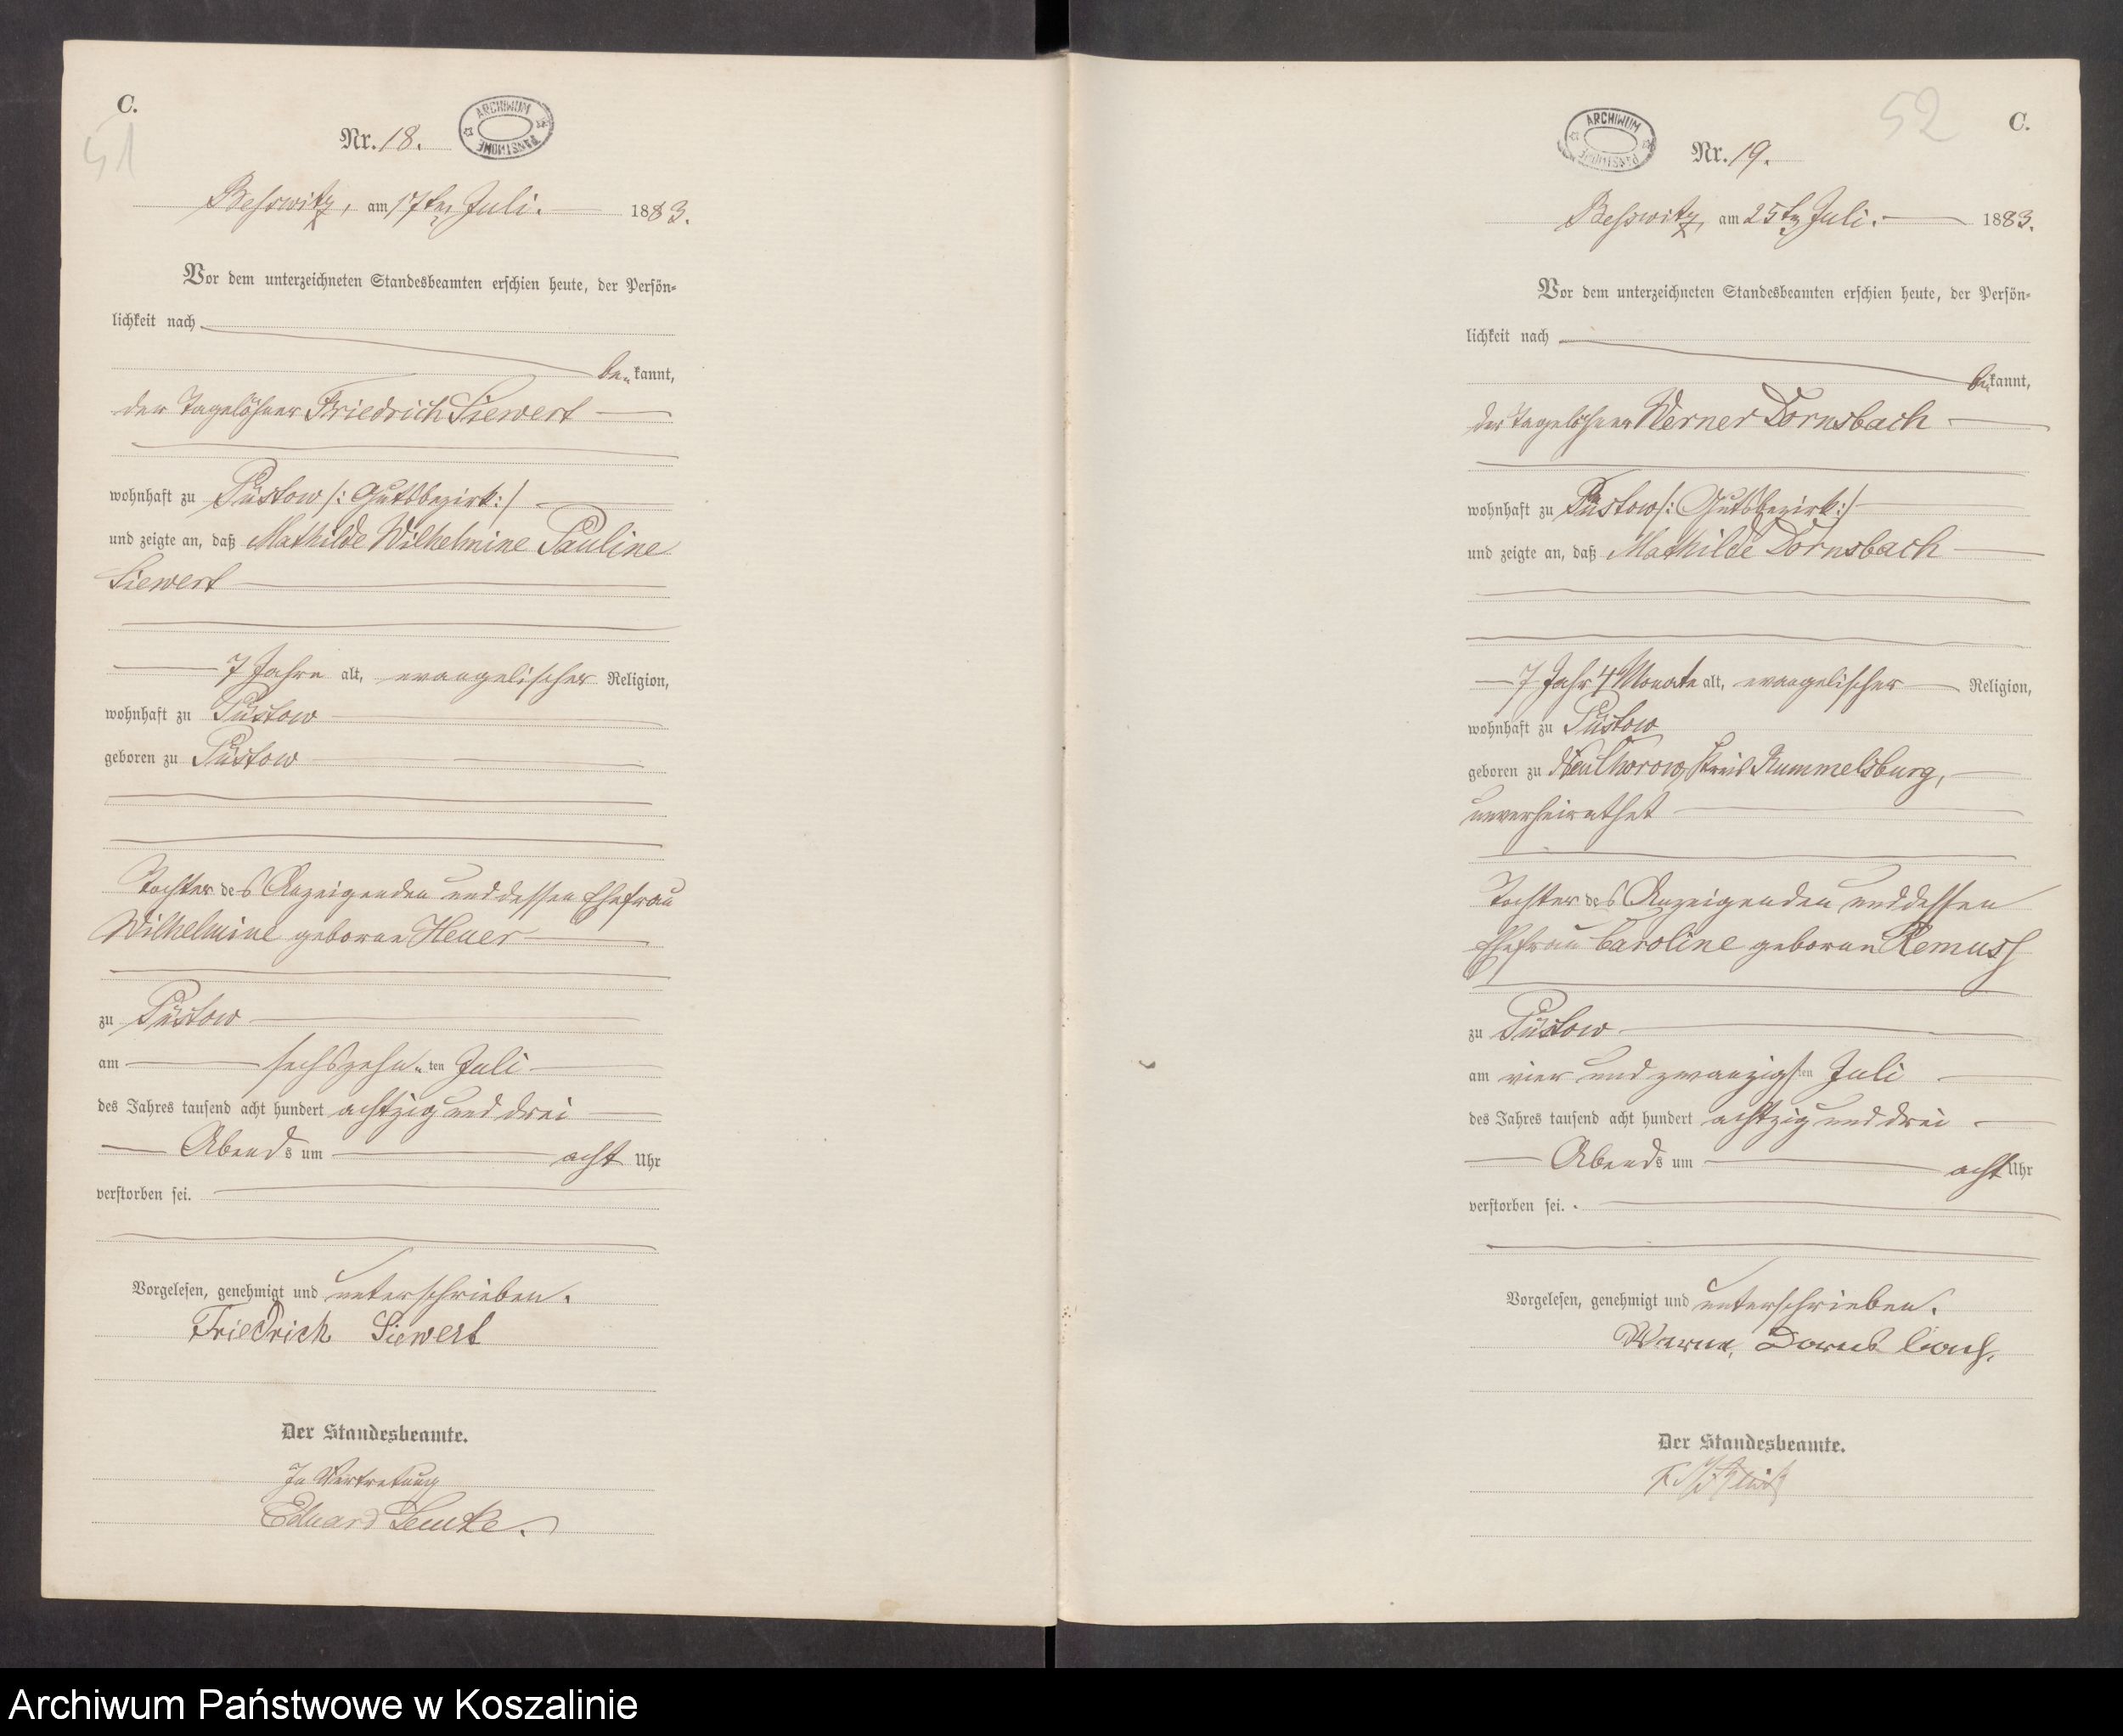 C.
51
Nr. 18.
ARCHIWUM PAŃSTWOWE
Beßwitz, am 17ten Juli. 1883.
Vor dem unterzeichneten Standesbeamten erschien heute, der Persön-
lichkeit nach
be„kannt,
der Tagelöhner Friedrich Siewert
wohnhaft zu Püstow /: Gutsbezirk:/
und zeigte an, daß Mathilde Wilhelmine Pauline
Siewert
7 Jahre alt, evangelischer Religion,
wohnhaft zu Püstow
geboren zu Püstow
Tochter des Anzeigenden und dessen Ehefrau
Wilhelmine geborne Heuer
zu Püstow
am sechszehn„ten Juli
des Jahres tausend acht hundert achtzig und drei
Abends um acht Uhr
verstorben sei.
Vorgelesen, genehmigt und unterschrieben.
Friedrich Siewert
Der Standesbeamte.
In Vertretung
Eduard Lemke.
52
C.
ARCHIWUM PAŃSTWOWE
Nr. 19.
Beßwitz, am 25ten Juli. 1883.
Vor dem unterzeichneten Standesbeamten erschien heute, der Persön-
lichkeit nach
be„kannt,
der Tagelöhner Werner Dornsbach
wohnhaft zu Püstow /: Gutsbezirk:/
und zeigte an, daß Mathilde Dornsbach
7 Jahr 4 Monate alt, evangelischer Religion,
wohnhaft zu Püstow
geboren zu Kreis Rummelsburg,
unverheirathet
Tochter des Anzeigenden und dessen
Ehefrau Caroline geborne Remuss
zu Püstow
am vier und zwanzigsten Juli
des Jahres tausend acht hundert achtzig und drei
Abends um acht Uhr
verstorben sei.
Vorgelesen, genehmigt und unterschrieben.
Dornsbach.
Der Standesbeamte.
Archiwum Państwowe w Koszalinie